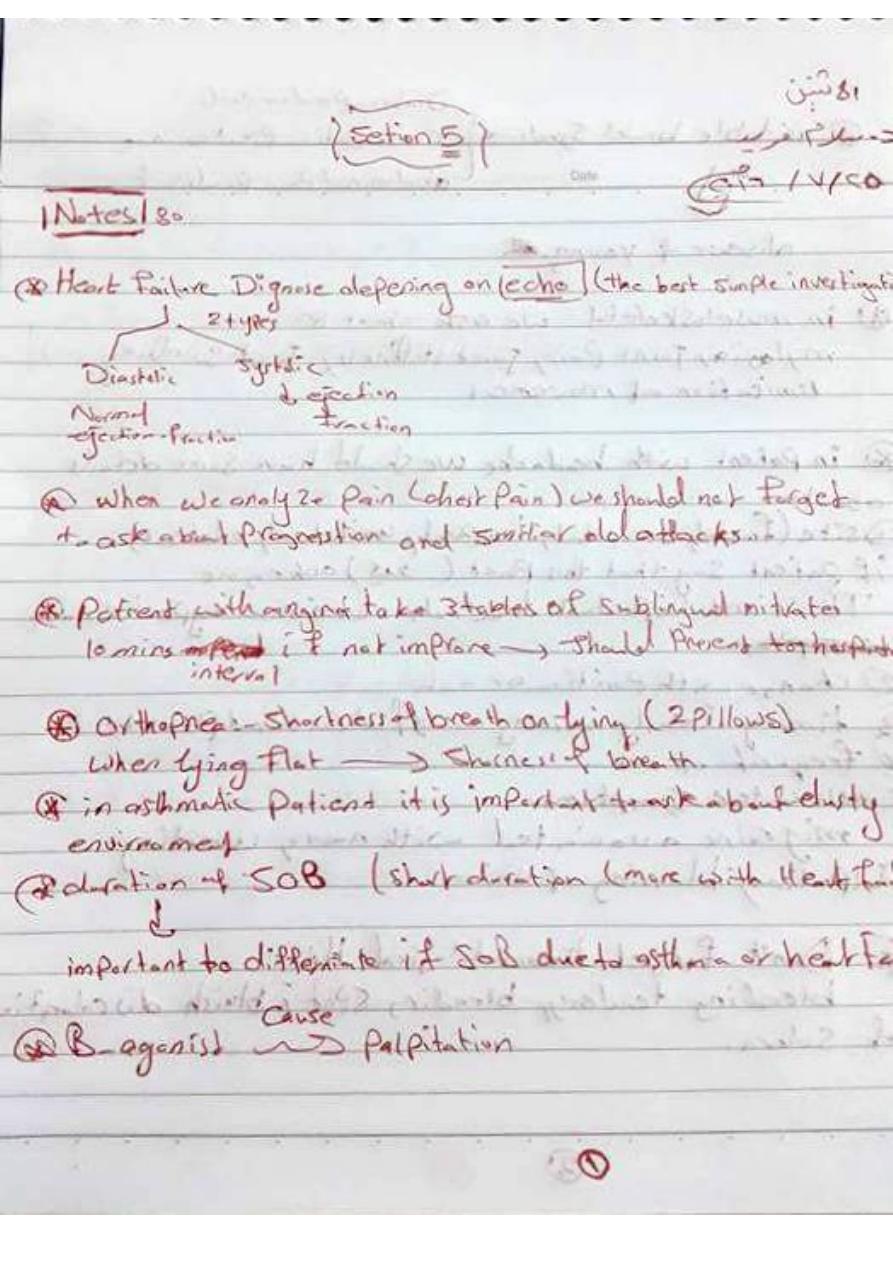 الاثنين
Setion 5
د. سلام فريد
Date
Notes 80
* Heart Failure Dignose depering on echo (the best simple investigati
2 types
Diastolic Systolic
Normal ejection-fraction ↓ ejection fraction
* when we analyze Pain (chest Pain) we should not forget
to ask about Progresstion and similiar old attacks.
* Patient with angina take 3 tables of sublingual nitrates
10 mins if not improve → should Present to hospit
interval
* Orthopnea:- Shortness of breath on lying (2 Pillows)
when lying flat → Shorness of breath.
* in asthmatic Patient it is important to ask about dusty
enviroment
* duration of SOB (short duration (more with Heart fai
↓
important to differniate if SOB due to asthma or heart Fa
Cause
* B-agonist → Palpitation
1